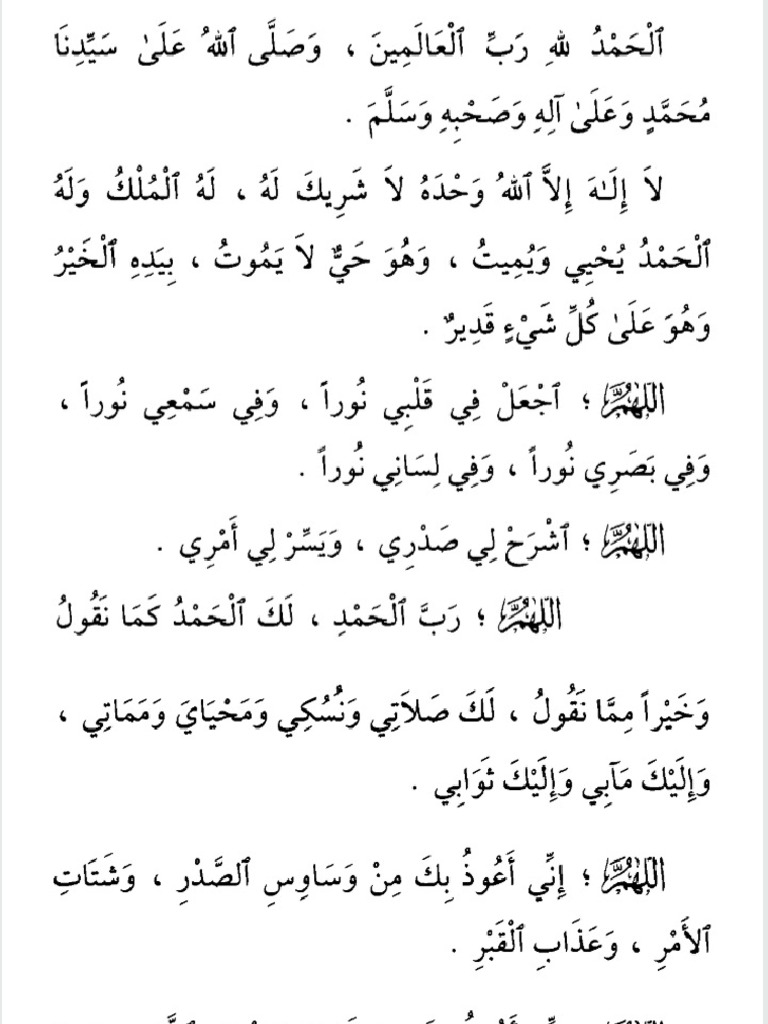 ٱلْحَمْدُ لِلّٰهِ رَبِّ ٱلْعَالَمِينَ ، وَصَلَّى ٱللهُ عَلَىٰ سَيِّدِنَا
مُحَمَّدٍ وَعَلَىٰ آلِهِ وَصَحْبِهِ وَسَلَّمَ .
لاَ إِلَـٰهَ إِلاَّ ٱللهُ وَحْدَهُ لاَ شَرِيكَ لَهُ ، لَهُ ٱلْمُلْكُ وَلَهُ
ٱلْحَمْدُ يُحْيِي وَيُمِيتُ ، وَهُوَ حَيٌّ لاَ يَمُوتُ ، بِيَدِهِ ٱلْخَيْرُ
وَهُوَ عَلَىٰ كُلِّ شَيْءٍ قَدِيرٌ .
اللَّهُمَّ ؛ ٱجْعَلْ فِي قَلْبِي نُوراً ، وَفِي سَمْعِي نُوراً ،
وَفِي بَصَرِي نُوراً ، وَفِي لِسَانِي نُوراً .
اللَّهُمَّ ؛ ٱشْرَحْ لِي صَدْرِي ، وَيَسِّرْ لِي أَمْرِي .
اللَّهُمَّ ؛ رَبَّ ٱلْحَمْدِ ، لَكَ ٱلْحَمْدُ كَمَا نَقُولُ
وَخَيْراً مِمَّا نَقُولُ ، لَكَ صَلاَتِي وَنُسُكِي وَمَحْيَايَ وَمَمَاتِي ،
وَإِلَيْكَ مَآبِي وَإِلَيْكَ ثَوَابِي .
اللَّهُمَّ ؛ إِنِّي أَعُوذُ بِكَ مِنْ وَسَاوِسِ ٱلصَّدْرِ ، وَشَتَاتِ
ٱلأَمْرِ ، وَعَذَابِ ٱلْقَبْرِ .